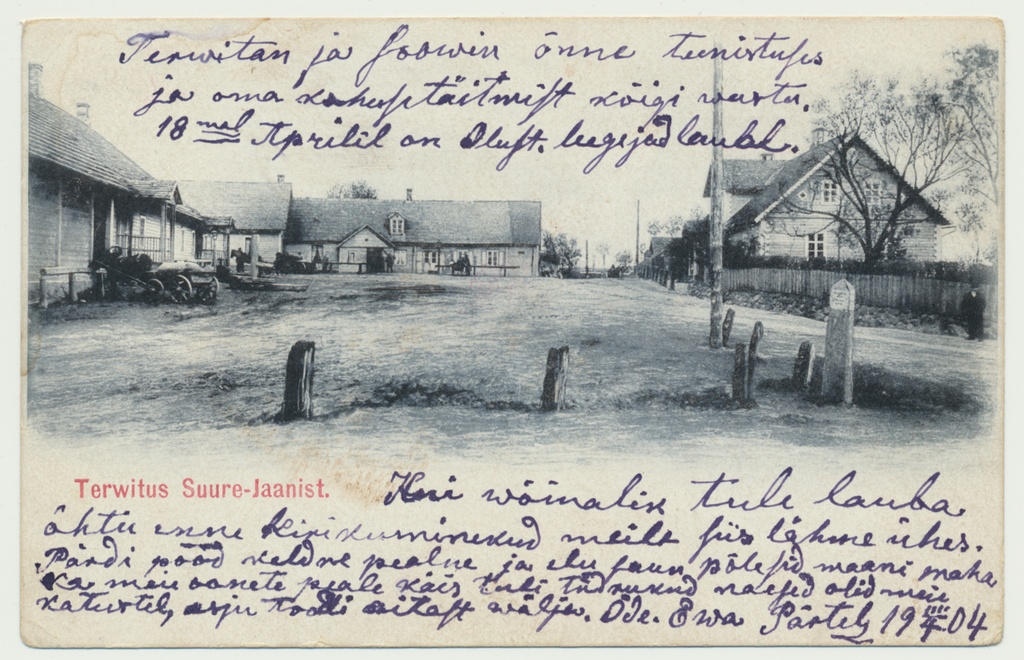 Terwitan ja soowin õnne teenistuses
ja oma kohusetäitmist kõigi wastu.
18 mal Aprilil on Olust. leegijad laubl.
Terwitus Suure-Jaanist.
Kui wõimalik tule lauba
õhtu enne kirikuminekud meile siis lähme ühes.
Pärdi pööd keldre pealne ja elu saun põlesid maani maha
ka meie oonete peale käis tuli tüdrukud naesed olid meie
katustel, asju toodi aitast wälja. Õde. Ewa Pärtel, 19 4/IIII 04